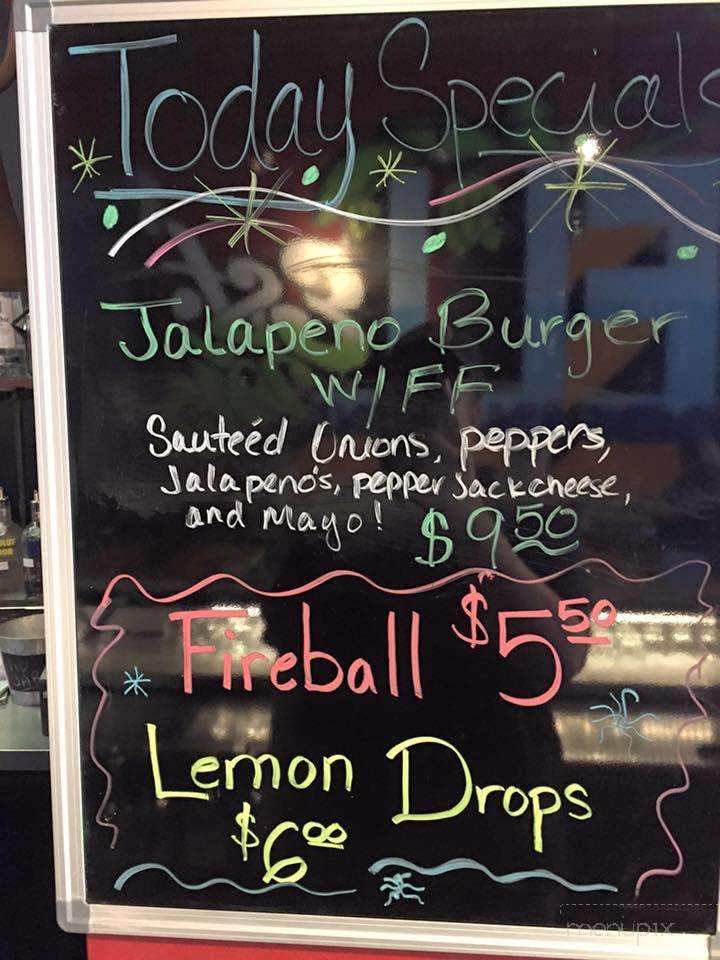 Today Specials
Jalapeno Burger
W/FF
Sauteéd Onions, peppers,
Jalapeno's, pepper Jack cheese,
and Mayo! $9.50
Fireball $5.50
Lemon Drops
$6.00
menupix